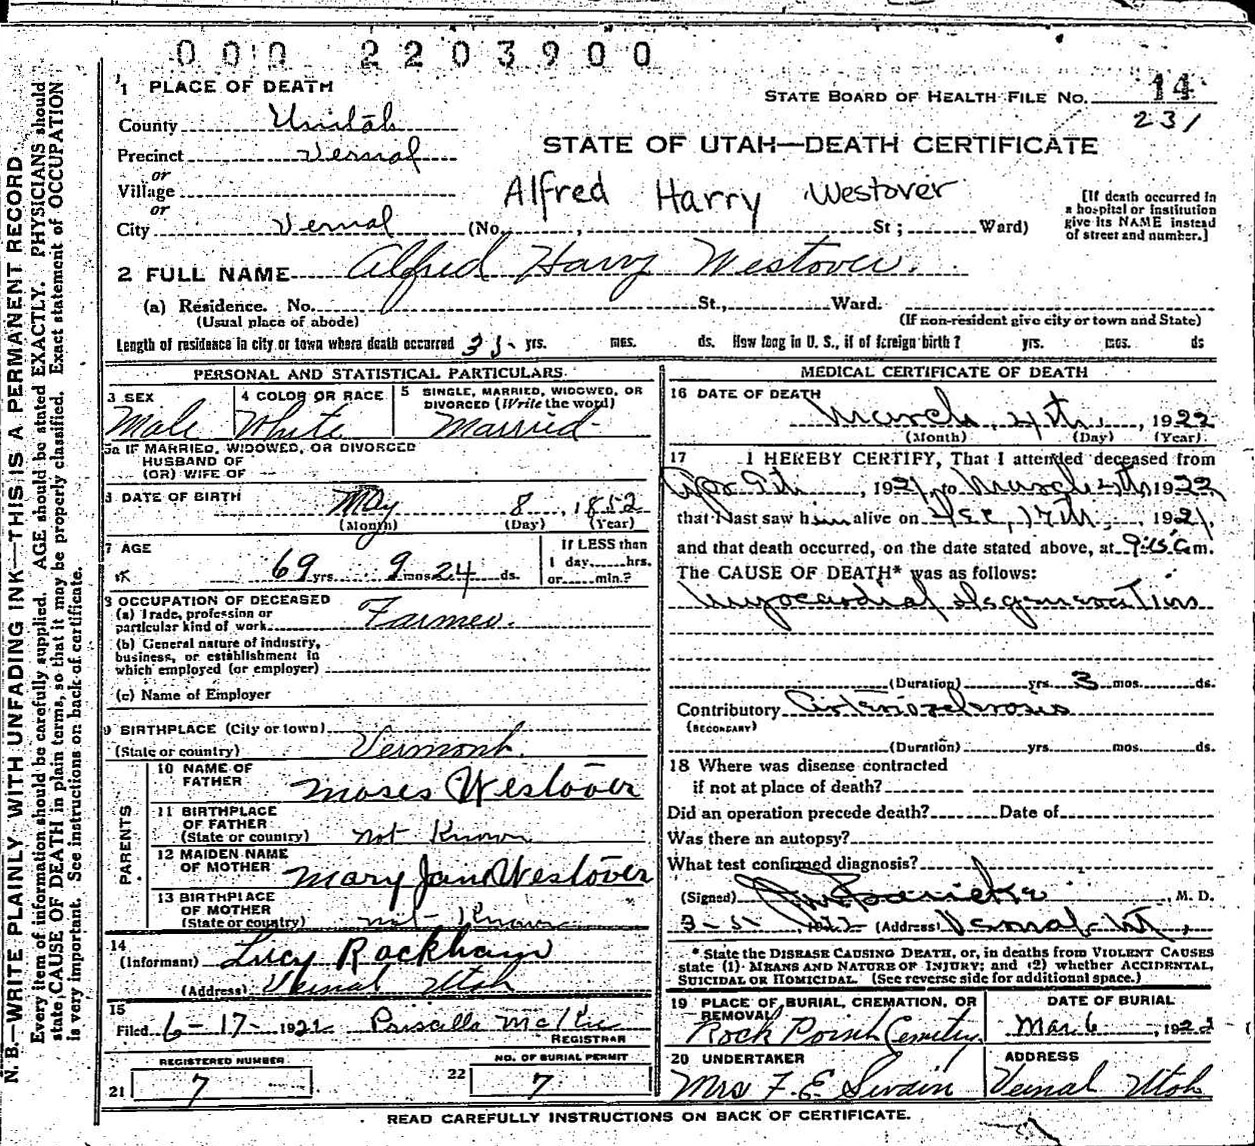 000 2203900
1 PLACE OF DEATH
STATE BOARD OF HEALTH FILE NO. 14
231
County Unitah
STATE OF UTAH—DEATH CERTIFICATE
Precinct Vernal
or
Village
Alfred Harry Westover
[If death occurred in a hospital or institution give its NAME instead of street and number.]
or
City Vernal (No. , St; Ward)
2 FULL NAME Alfred Harry Westover.
(a) Residence. No. St., Ward.
(Usual place of abode) (If non-resident give city or town and State)
Length of residence in city or town where death occurred yrs. mos. ds. How long in U. S., if of foreign birth? yrs. mos. ds
PERSONAL AND STATISTICAL PARTICULARS.
3 SEX Male
4 COLOR OR RACE White
5 SINGLE, MARRIED, WIDOWED, OR DIVORCED (Write the word) Married
5a IF MARRIED, WIDOWED, OR DIVORCED
HUSBAND OF
(OR) WIFE OF
6 DATE OF BIRTH May 8, 1852
(Month) (Day) (Year)
7 AGE 69 yrs. 9 mos 24 ds.
If LESS than
1 day hrs.
or min.?
8 OCCUPATION OF DECEASED
(a) Trade, profession or
particular kind of work Farmer.
(b) General nature of industry,
business, or establishment in
which employed (or employer)
(c) Name of Employer
9 BIRTHPLACE (City or town)
(State or country) Vermont.
PARENTS
10 NAME OF FATHER Moses Westover
11 BIRTHPLACE OF FATHER
(State or country) not Known
12 MAIDEN NAME OF MOTHER Mary Jane Westover
13 BIRTHPLACE OF MOTHER
(State or country) not Known
14
(Informant) Lucy Rockham
(Address) Vernal Utah
15
Filed 6-17- 1922 Priscilla McKie
REGISTRAR
REGISTERED NUMBER
21 7
NO. OF BURIAL PERMIT
22 7
MEDICAL CERTIFICATE OF DEATH
16 DATE OF DEATH March, 4th, 1922
(Month) (Day) (Year)
17 I HEREBY CERTIFY, That I attended deceased from
Apr 9th, 1921, to March 4th, 1922
that I last saw him alive on Dec, 17th, 1921.
and that death occurred, on the date stated above, at 9:15 a m.
The CAUSE OF DEATH* was as follows:
Myocardial degeneration
(Duration) yrs. 3 mos. ds.
Contributory Arteriosclerosis
(SECONDARY)
(Duration) yrs. mos. ds.
18 Where was disease contracted
if not at place of death?
Did an operation precede death? Date of
Was there an autopsy?
What test confirmed diagnosis?
(Signed) , M. D.
1922 (Address) Vernal Ut,
* State the DISEASE CAUSING DEATH, or, in deaths from VIOLENT CAUSES
state (1) MEANS AND NATURE OF INJURY; and (2) whether ACCIDENTAL,
SUICIDAL OR HOMICIDAL. (See reverse side for additional space.)
19 PLACE OF BURIAL, CREMATION, OR REMOVAL
Rock Point Cemetery
DATE OF BURIAL
Mar 6, 1922
20 UNDERTAKER
Mrs F. E. Swain
ADDRESS
Vernal Utah
READ CAREFULLY INSTRUCTIONS ON BACK OF CERTIFICATE.
N. B.—WRITE PLAINLY WITH UNFADING INK—THIS IS A PERMANENT RECORD
Every item of information should be carefully supplied. AGE should be stated EXACTLY. PHYSICIANS should
state CAUSE OF DEATH in plain terms, so that it may be properly classified. Exact statement of OCCUPATION
is very important. See instructions on back of certificate.